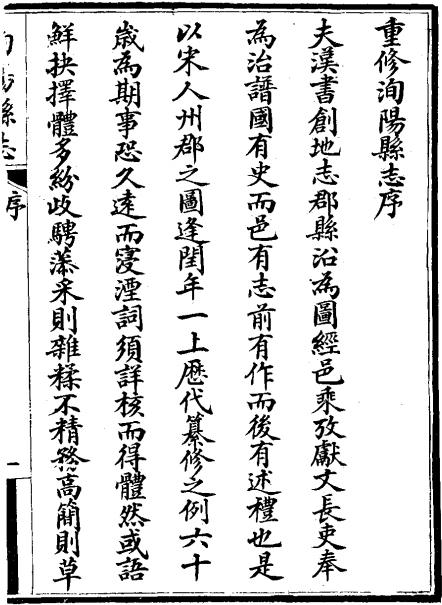 重修洵陽縣志序
夫漢書創地志郡縣沿為圖經邑乘攷獻文長吏奉
為治譜國有史而邑有志前有作而後有述禮也是
以宋人州郡之圖逢閏年一上歷代纂修之例六十
歲為期事恐久遠而寖湮詞須詳核而得體然或語
鮮抉擇體多紛歧騁藻采則雜糅不精務高簡則草
洵陽縣志
序
一